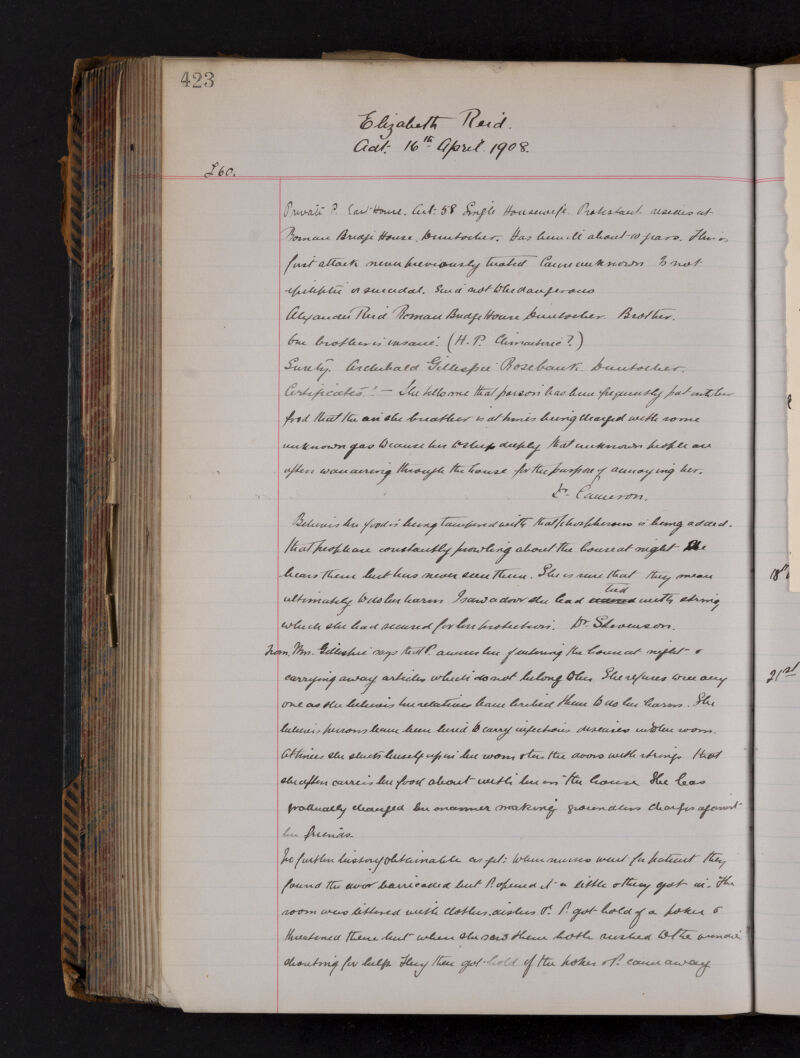 423
Elizabeth Reid.
Adt. 16th April 1908.
£60.
Private P. East House. Aet: 58 Single Housewife. Protestant resides at
Roman Bridge House, Duntocher. Has been ill about 10 years. This is
first attack never previously treated Cause unknown Is not
epileptic or suicidal. Said not to be dangerous
Alexander Reid Roman Bridge House Duntocher. Brother.
One brother is insane. (H.P. Climacteric?)
Surety. Archibald Gillespie Rosebank. Duntocher.
Certificates: — She tells me that poison has been frequently put into her
food that the air she breathes is at times being charged with some
unknown gas to cause her to sleep deeply that unknown people are
often wandering through the house for the purpose of annoying her.
Dr. Cameron.
Believes her food is being tampered with that phosphorous is being added.
that people are constantly prowling about the house at night She
hears them but has never seen them. She is sure that they mean
ultimately to do her harm I saw a door she had tied with string
which she had secured for her protection. Dr. Stevenson.
From Mrs. Gillespie says that P. accuses her of entering the house at night &
carrying away articles which do not belong to her. She refuses to see any
one as she believes her relatives have bribed them to do her harm. She
believes persons have been hired to carry infectious diseases into her room.
At times she shuts herself up in her room & ties the doors with strings that
she often carries her food about with her in the house She has
gradually changed her manner making groundless charges against
her friends.
No further history obtainable as yet: When nurses went for patient they
found the door barricaded but P. opened it a little & they got in. The
room was littered with clothes, dishes &c. P. got hold of a poker &
threatened them but when she saw them both rushed to the window
shouting for help. They then got hold of the poker & P. came away
18th
21st